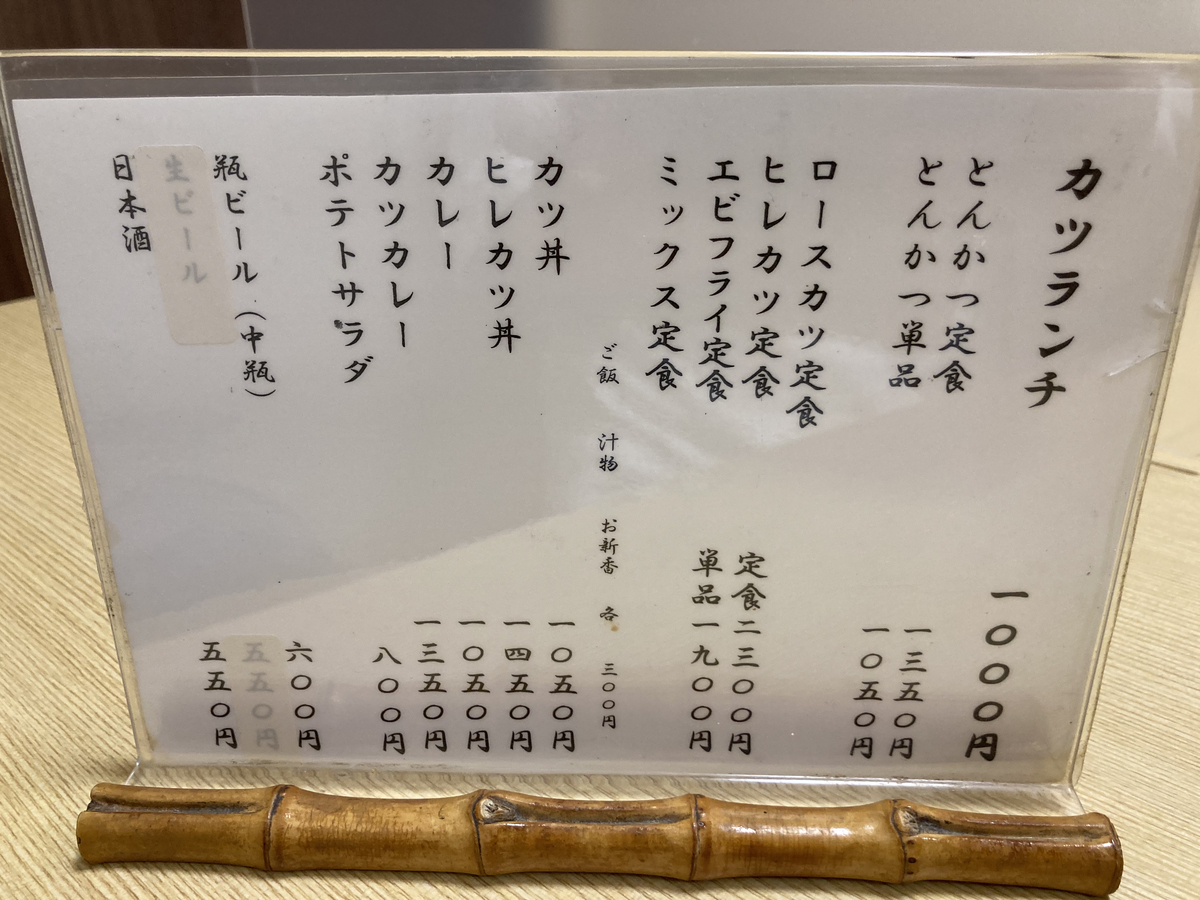 カツランチ 一〇〇〇円
とんかつ定食 一三五〇円
とんかつ単品 一〇五〇円
ロースカツ定食
ヒレカツ定食
エビフライ定食
ミックス定食
定食 二三〇〇円
単品 一九〇〇円
ご飯 汁物 お新香 各 三〇〇円
カツ丼 一〇五〇円
ヒレカツ丼 一四五〇円
カレー 一〇五〇円
カツカレー 一三五〇円
ポテトサラダ 八〇〇円
瓶ビール(中瓶) 六〇〇円
生ビール 五五〇円
日本酒 五五〇円